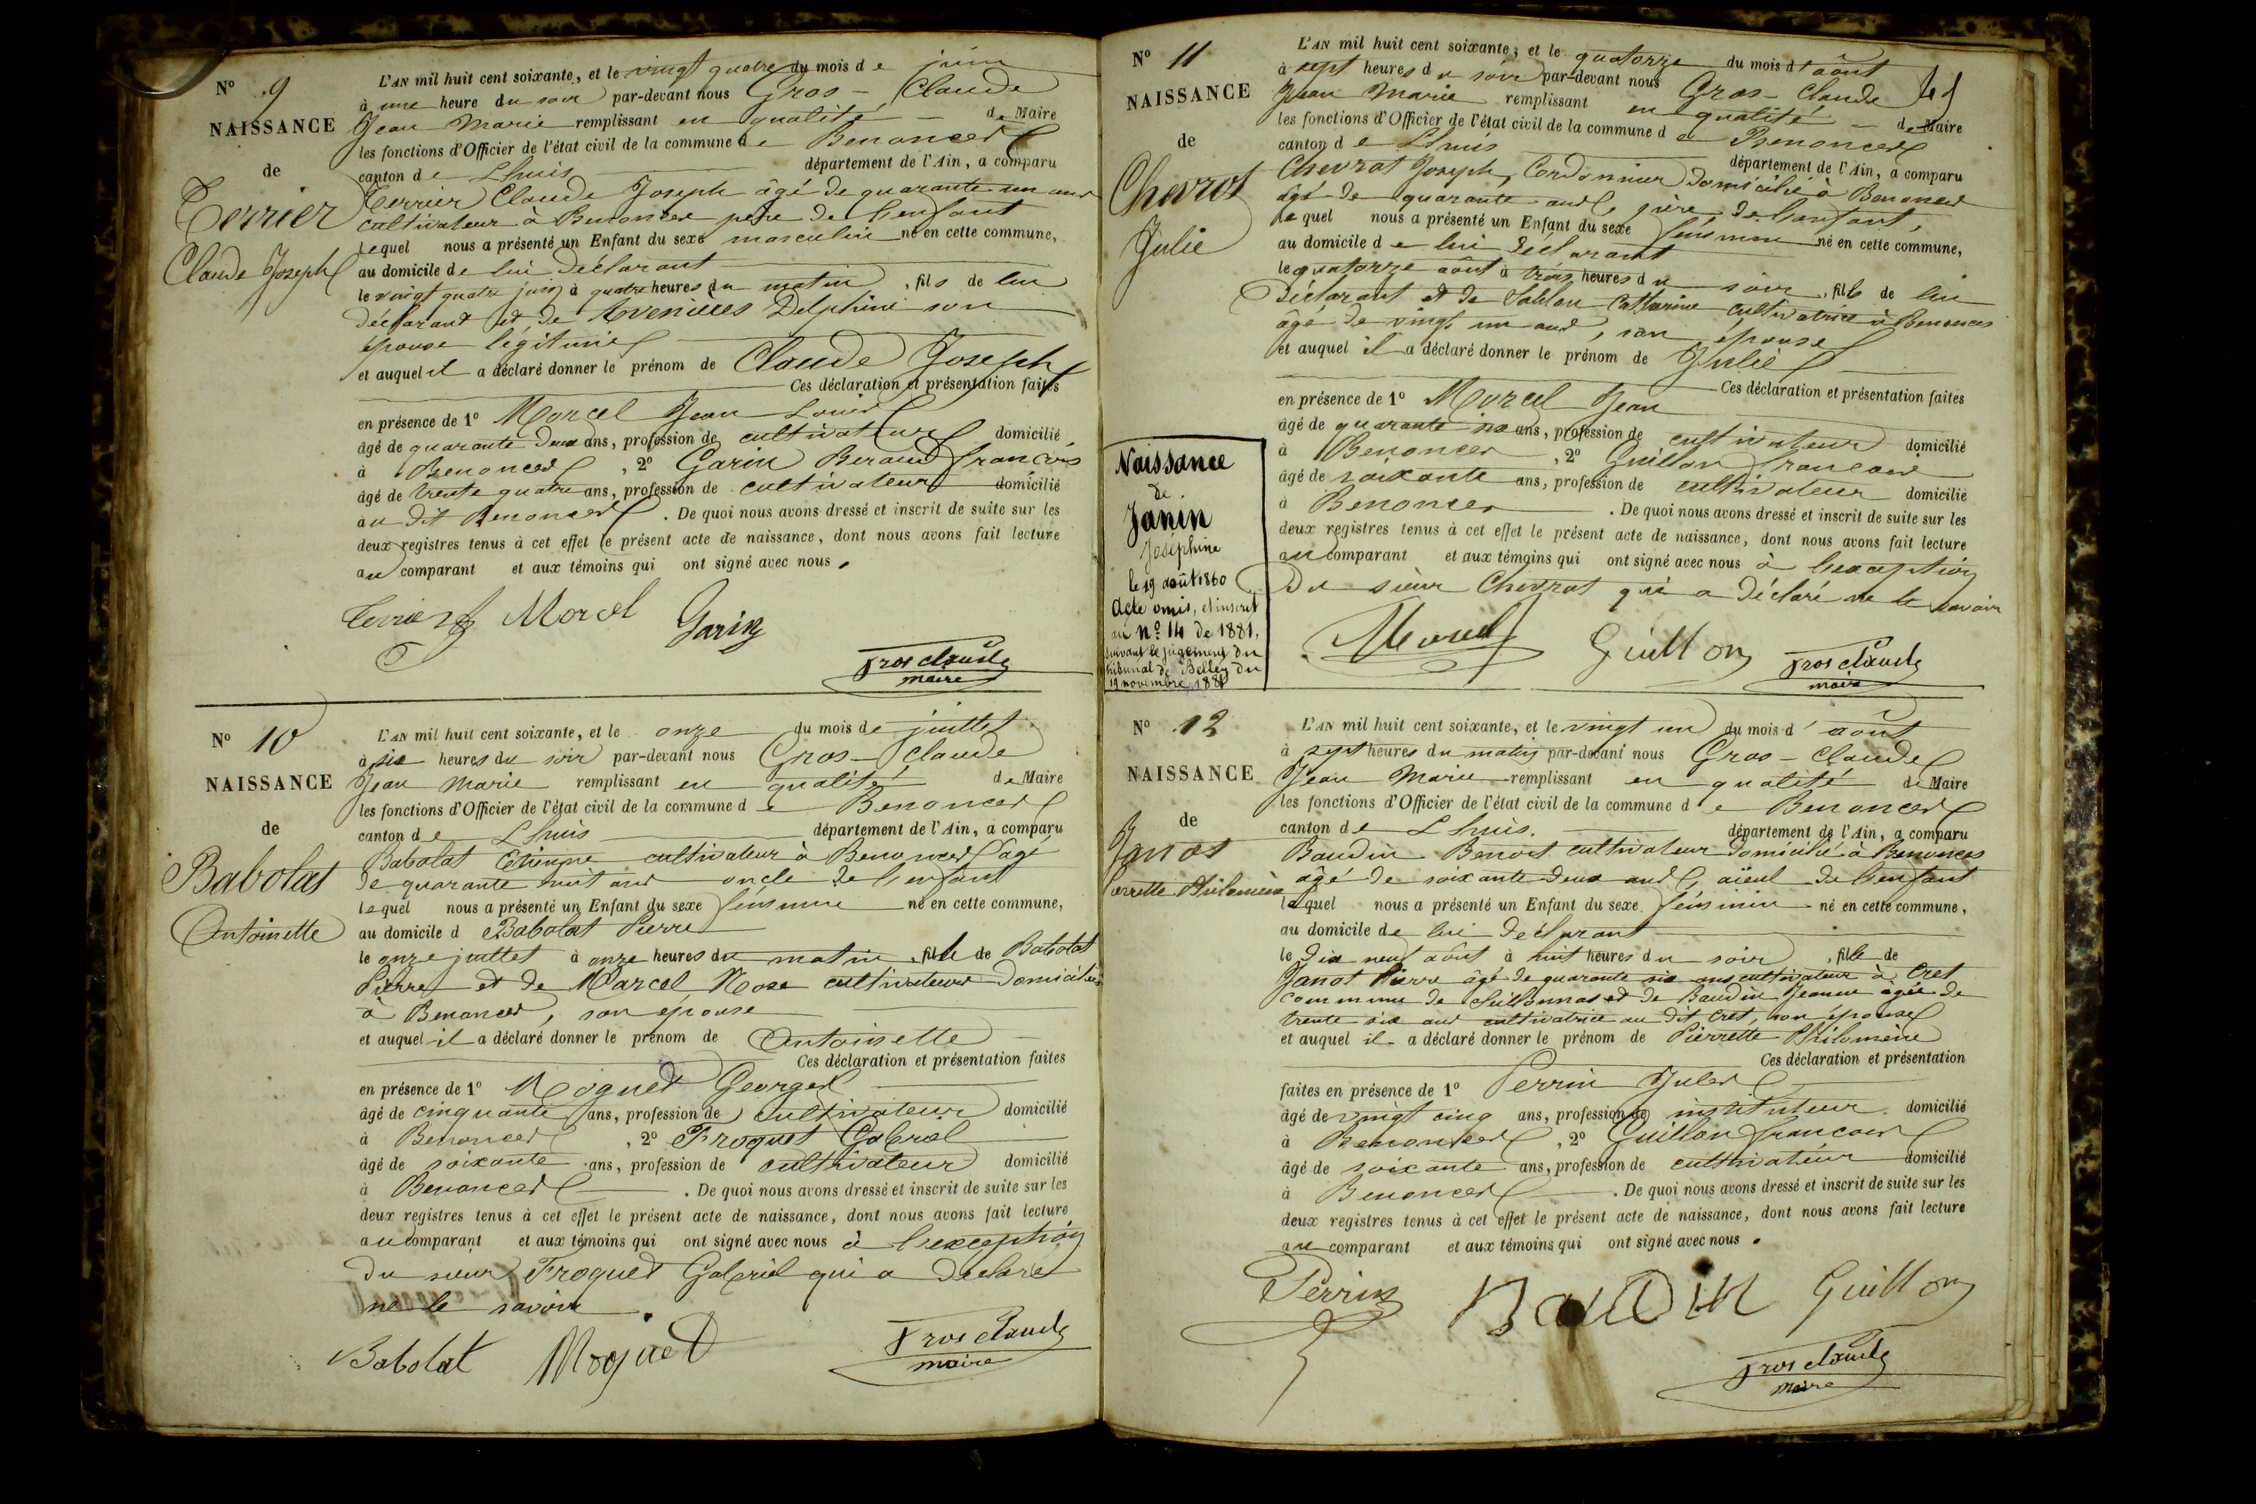 N° 9
NAISSANCE
de
Terrier
Claude Joseph
L'AN mil huit cent soixante, et le vingt quatre du mois de juin
à une heure du soir par-devant nous Gros-Claude
Jean Marie remplissant en qualité de Maire
les fonctions d'Officier de l'état civil de la commune de Benonces
canton de Lhuis département de l'Ain, a comparu
Terrier Claude Joseph âgé de quarante un ans
cultivateur à Benonces père de l'enfant
lequel nous a présenté un Enfant du sexe masculin né en cette commune,
au domicile de lui déclarant
le vingt quatre juin à quatre heures du matin, fils de lui
déclarant et de Avenières Delphine son
épouse légitime
et auquel il a déclaré donner le prénom de Claude Joseph
Ces déclaration et présentation faites
en présence de 1° Morcel Jean Louis
âgé de quarante deux ans, profession de cultivateur domicilié
à Benonces, 2° Garin Beraud francois
âgé de trente quatre ans, profession de cultivateur domicilié
au dit Benonces. De quoi nous avons dressé et inscrit de suite sur les
deux registres tenus à cet effet le présent acte de naissance, dont nous avons fait lecture
au comparant et aux témoins qui ont signé avec nous.
Terrier Morcel Garin
Gros Claude
maire
N° 10
NAISSANCE
de
Babolat
Antoinette
L'AN mil huit cent soixante, et le onze du mois de juillet
à six heures du soir par-devant nous Gros-Claude
Jean Marie remplissant en qualité de Maire
les fonctions d'Officier de l'état civil de la commune de Benonces
canton de Lhuis département de l'Ain, a comparu
Babolat Etienne cultivateur à Benonces âgé
de quarante huit ans oncle de l'enfant
lequel nous a présenté un Enfant du sexe féminine né en cette commune,
au domicile d Babolat Pierre
le onze juillet à onze heures du matin, fille de Babolat
Pierre et de Marcel Rose cultivateurs domiciliés
à Benonces, son épouse
et auquel il a déclaré donner le prénom de Antoinette
Ces déclaration et présentation faites
en présence de 1° Moguet Georges
âgé de cinquante ans, profession de cultivateur domicilié
à Benonces, 2° Froquet Gabriel
âgé de soixante ans, profession de cultivateur domicilié
à Benonces. De quoi nous avons dressé et inscrit de suite sur les
deux registres tenus à cet effet le présent acte de naissance, dont nous avons fait lecture
au comparant et aux témoins qui ont signé avec nous à l'exception
du sieur Froquet Gabriel qui a déclaré
ne le savoir.
Babolat Moguet
Gros Claude
maire
N° 11
NAISSANCE
de
Chevrot
Julie
L'AN mil huit cent soixante, et le quatorze du mois d'août
à sept heures du soir par-devant nous Gros-Claude
Jean Marie remplissant en qualité de Maire
les fonctions d'Officier de l'état civil de la commune de Benonces
canton de Lhuis département de l'Ain, a comparu
Chevrot Joseph, Cordonnier domicilié à Benonces
âgé de quarante ans, père de l'enfant,
lequel nous a présenté un Enfant du sexe féminin né en cette commune,
au domicile de lui déclarant
le quatorze août à trois heures du soir, fille de lui
déclarant et de Sablon Catherine cultivatrice à Benonces
âgé de vingt un ans, son épouse
et auquel il a déclaré donner le prénom de Julie
Ces déclaration et présentation faites
en présence de 1° Morcel Jean
âgé de quarante six ans, profession de cultivateur domicilié
à Benonces, 2° Guillon francois
âgé de soixante ans, profession de cultivateur domicilié
à Benonces. De quoi nous avons dressé et inscrit de suite sur les
deux registres tenus à cet effet le présent acte de naissance, dont nous avons fait lecture
au comparant et aux témoins qui ont signé avec nous à l'exception
du sieur Chevrot qui a déclaré ne le savoir
Morcel Guillon Gros Claude
maire
Naissance
de
Janin
Joséphine
le 19 août 1860
Acte omis, et inscrit
au N° 14 de 1881,
suivant le jugement du
tribunal de Belley du
19 novembre 1881
N° 12
NAISSANCE
de
Janot
Pierrette Philomène
L'AN mil huit cent soixante, et le vingt un du mois d'août
à sept heures du matin par-devant nous Gros-Claude
Jean Marie remplissant en qualité de Maire
les fonctions d'Officier de l'état civil de la commune de Benonces
canton de Lhuis. département de l'Ain, a comparu
Baudin Benoit cultivateur domicilié à Benonces
âgé de soixante deux ans, aïeul de l'enfant
lequel nous a présenté un Enfant du sexe féminin né en cette commune,
au domicile de lui déclarant
le dix neuf août à huit heures du soir, fille de
Janot Pierre âgé de quarante six ans cultivateur à Cret
commune de Seillonnas et de Baudin Jeanne âgée de
trente six ans cultivatrice au dit Cret, son épouse
et auquel il a déclaré donner le prénom de Pierrette Philomène
Ces déclaration et présentation
faites en présence de 1° Perrin Jules
âgé de vingt cinq ans, profession de instituteur domicilié
à Benonces, 2° Guillon francois
âgé de soixante ans, profession de cultivateur domicilié
à Benonces. De quoi nous avons dressé et inscrit de suite sur les
deux registres tenus à cet effet le présent acte de naissance, dont nous avons fait lecture
au comparant et aux témoins qui ont signé avec nous.
Perrin Baudin Guillon
Gros Claude
maire